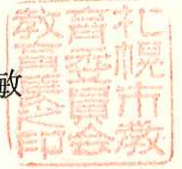 敏
札幌市教
育委員会
教育長之印